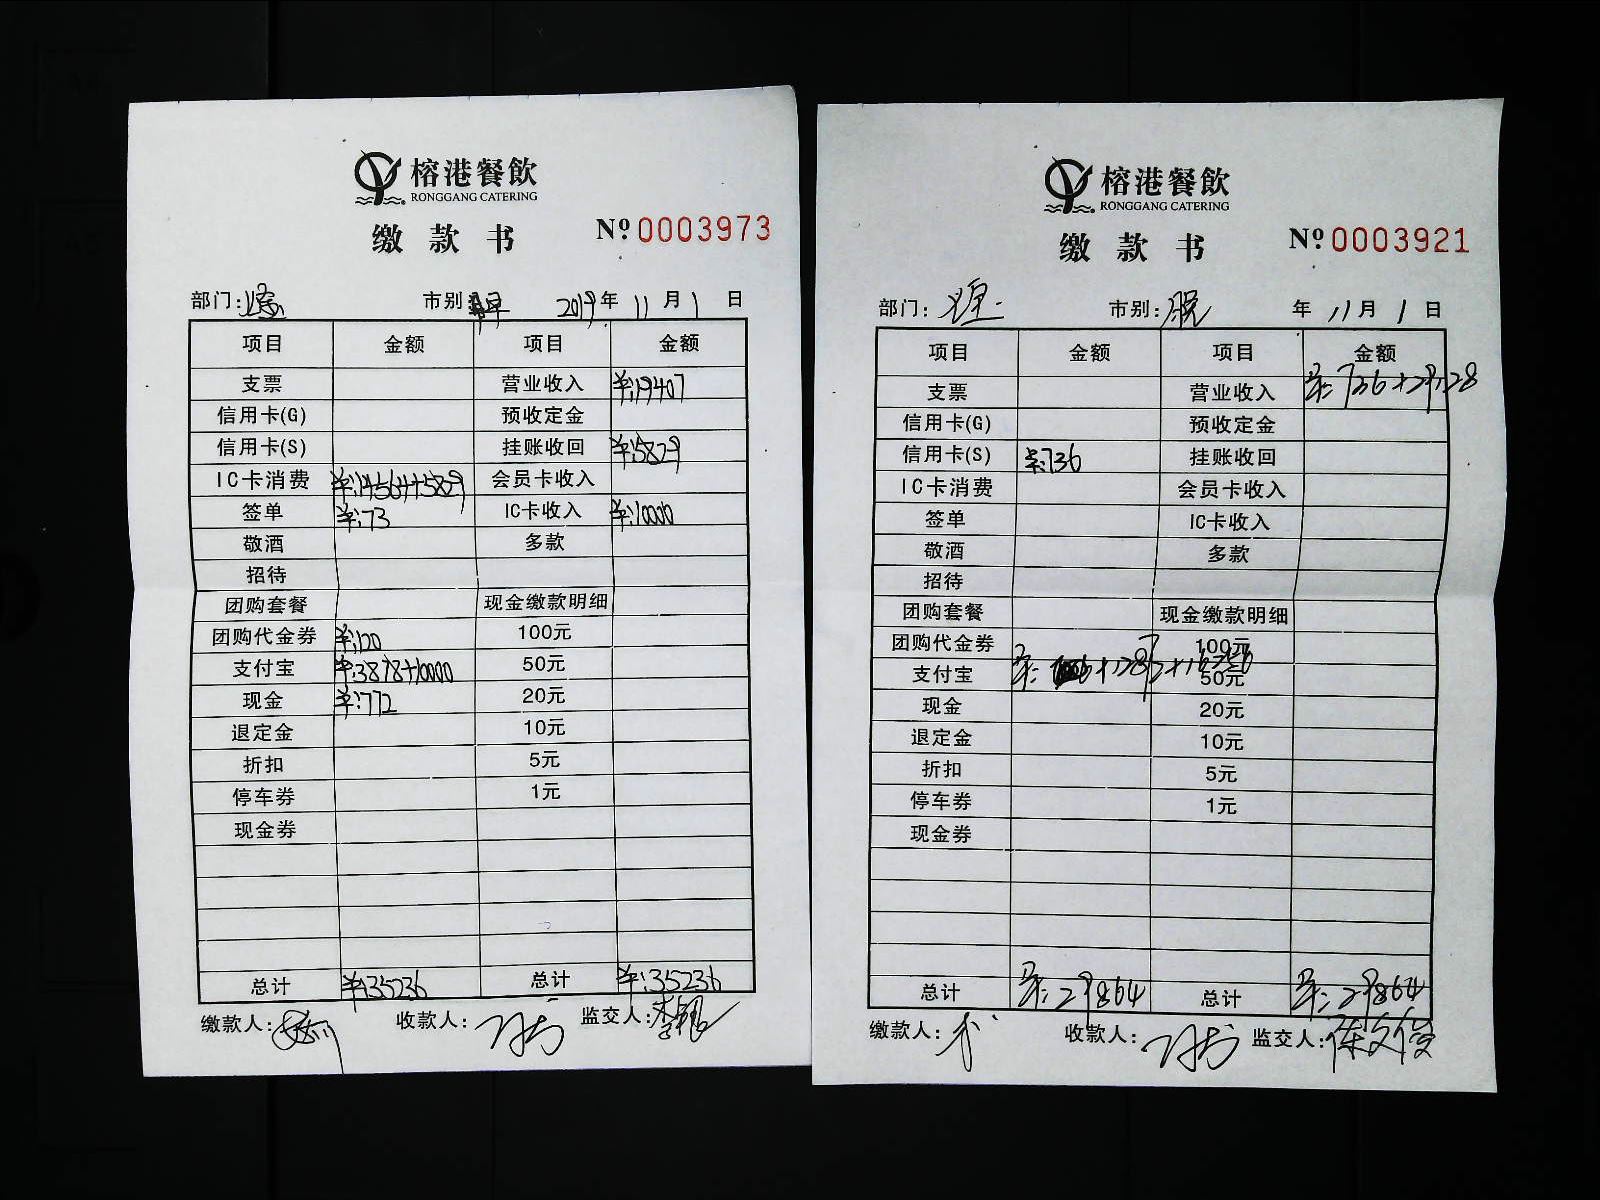 榕港餐飲
RONGGANG CATERING
缴款书
№0003973
部门: 市别: 2019年11月1日
项目 金额 项目 金额
支票 营业收入 ¥:19407
信用卡(G) 预收定金
信用卡(S) 挂账收回 ¥:5829
IC卡消费 ¥:14564+5829 会员卡收入
签单 ¥:73 IC卡收入 ¥:10000
敬酒 多款
招待
团购套餐 现金缴款明细
团购代金券 ¥:120 100元
支付宝 ¥:3878+10000 50元
现金 ¥:772 20元
退定金 10元
折扣 5元
停车券 1元
现金券
总计 ¥:35236 总计 ¥:35236
缴款人: 收款人: 监交人:
榕港餐飲
RONGGANG CATERING
缴款书
№0003921
部门: 市别: 年11月1日
项目 金额 项目 金额
支票 营业收入 ¥:736+29128
信用卡(G) 预收定金
信用卡(S) ¥:736 挂账收回
IC卡消费 会员卡收入
签单 IC卡收入
敬酒 多款
招待
团购套餐 现金缴款明细
团购代金券 100元
支付宝 50元
现金 20元
退定金 10元
折扣 5元
停车券 1元
现金券
总计 ¥:29864 总计 ¥:29864
缴款人: 收款人: 监交人:陈文俊